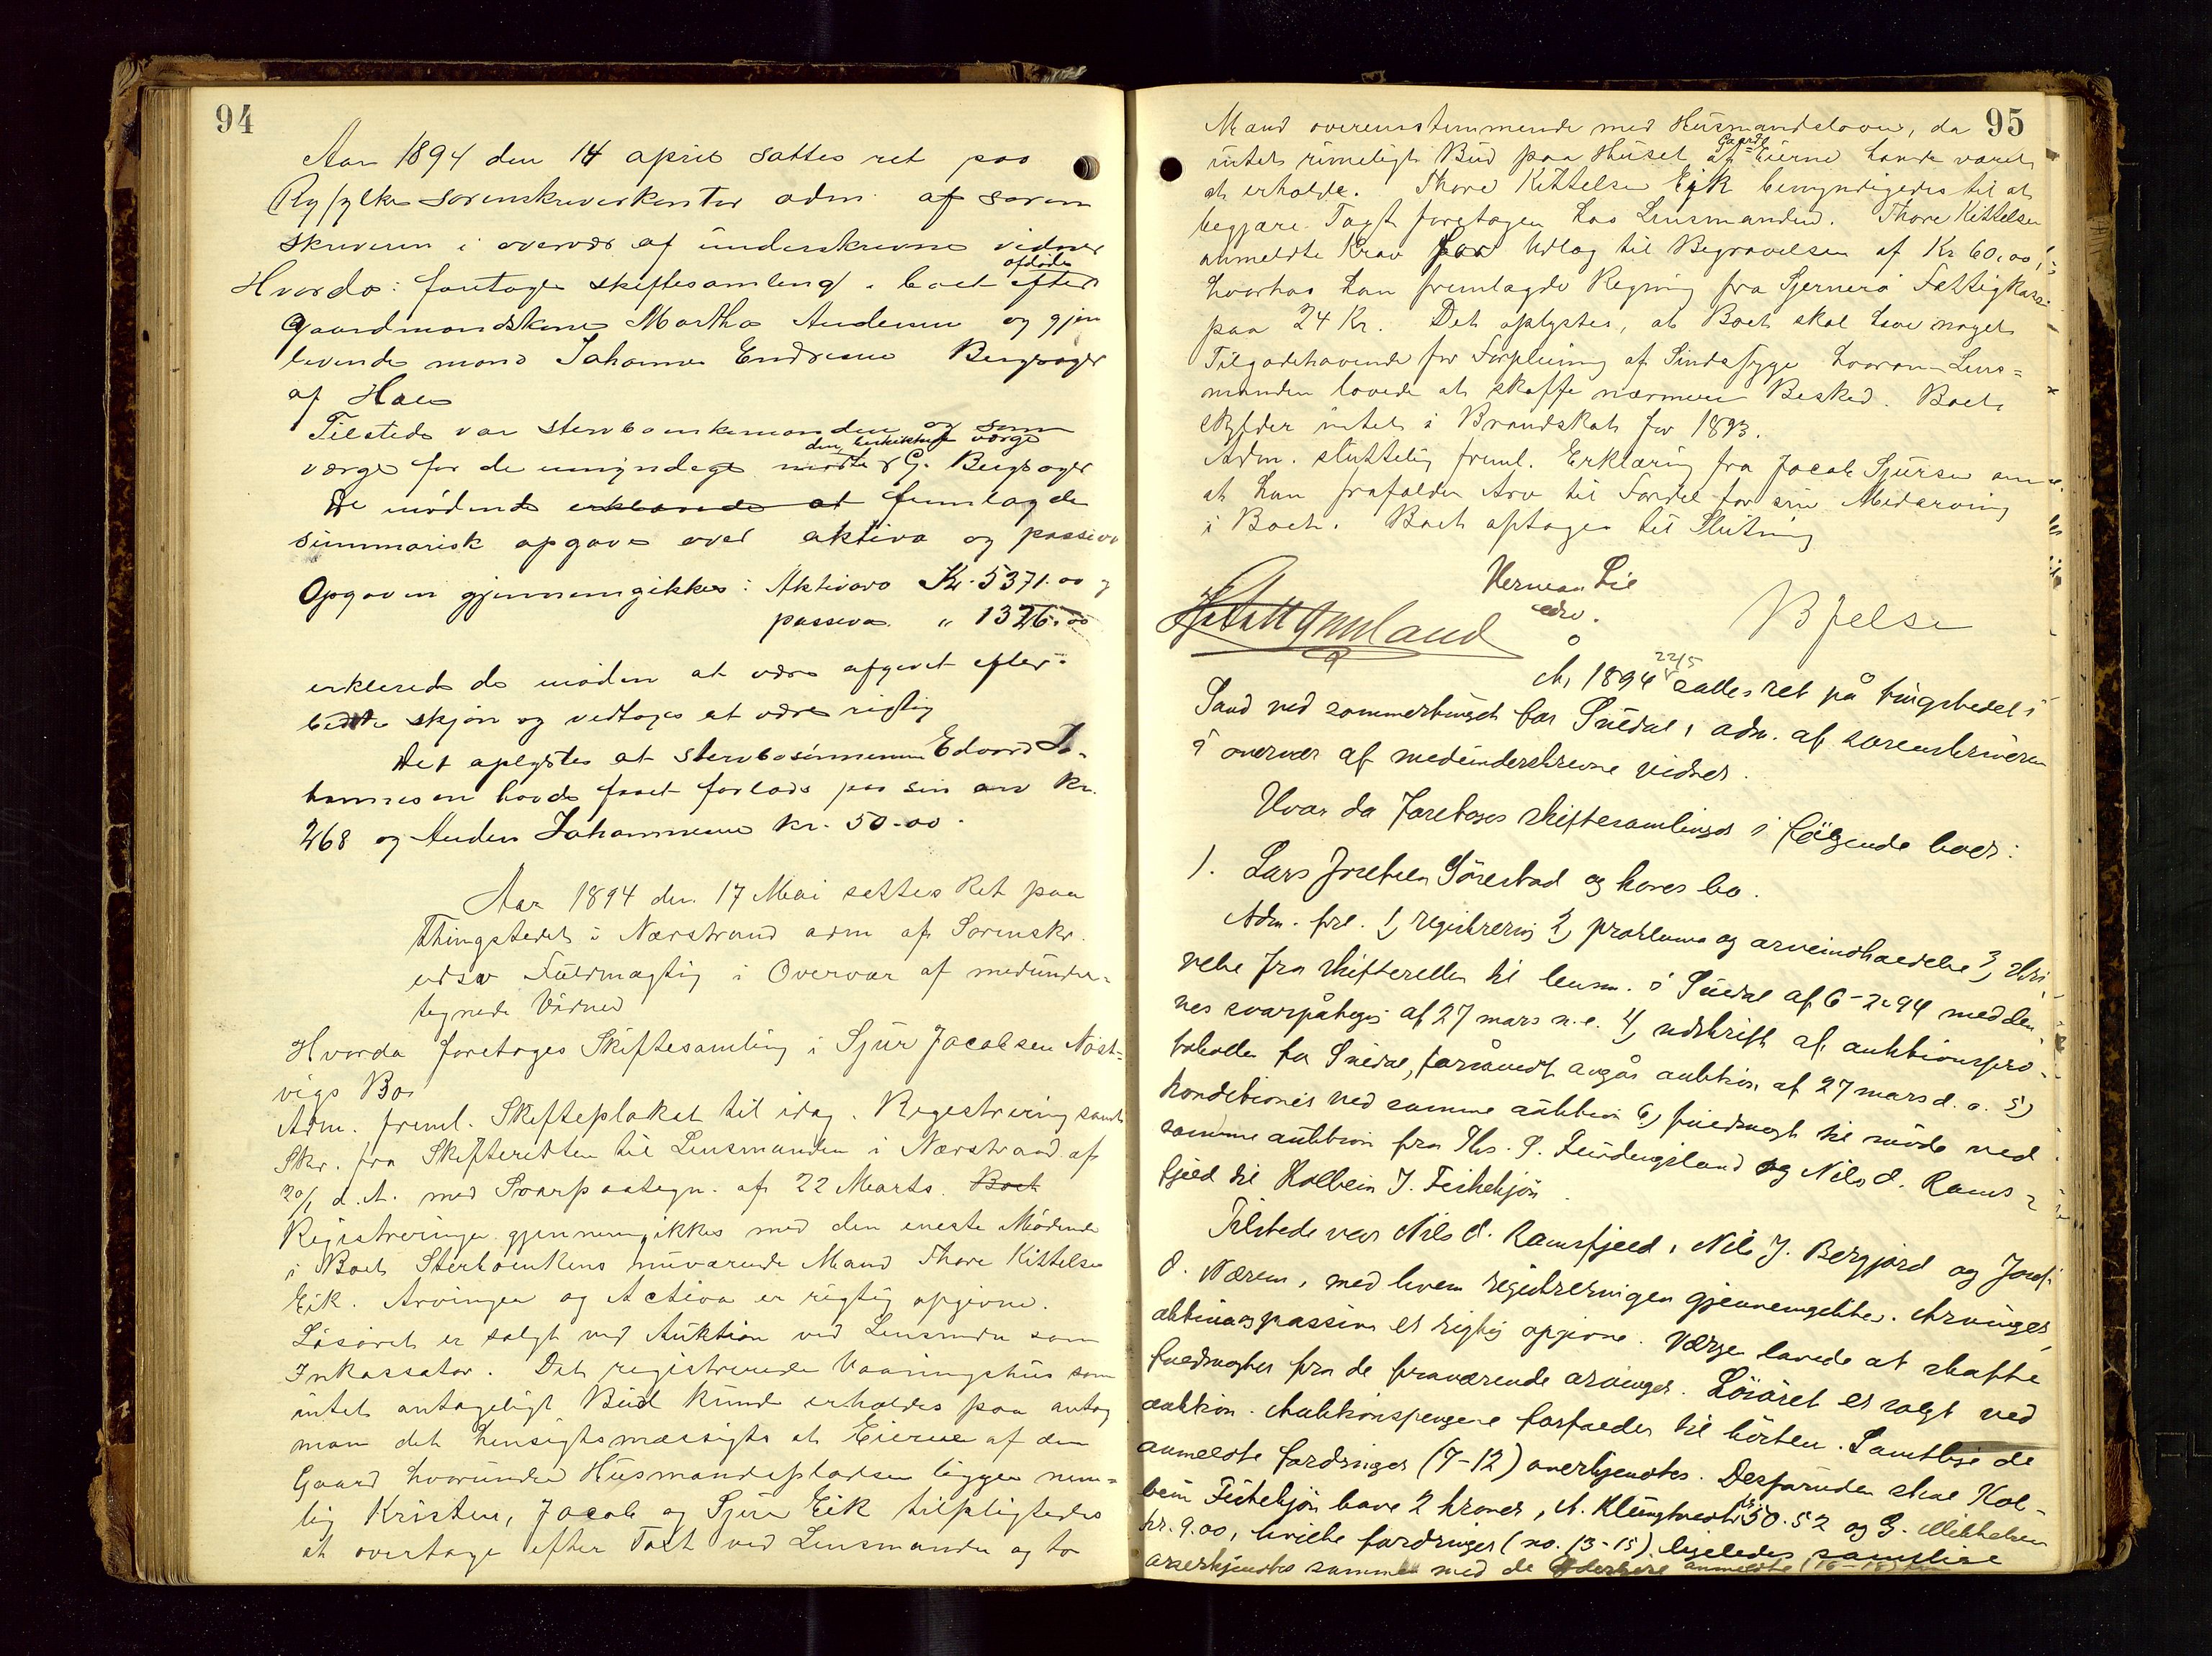 94
Aar 1894 den 14 april sattes ret paa
Ryfylke sorenskriverkontor adm. af soren
skriveren i overvær af underskrevne vidner
Hvorda: foretoges skiftesamling i boet efter afdøde
Gaardmandskone Martha Andersen og gjen
levende mand Johannes Endresen Bergsager
af Hals
Tilstede var stervboenkemanden og som
værge for de umyndige mødte den beskikkede værge G. Bergsager
De mødende erklærede at fremlagde
summarisk opgave over aktiva og passiva
Opgaven gjennemgikkes: Aktivaro Kr. 5371.00 og
passiva " 1326.00
erklærede de møden at være afgivet efter
bedste skjøn og vedtoges at være rigtig
Det oplystes at stervbosønnerne Edvard Jo-
hannesen havde faaet forlods paa sin arv kr.
268 og Anders Johannesen kr. 50.00.
Aar 1894 den 17 Mai sattes Ret paa
Thingstedet i Nærstrand adm af Sorenskr.
edsv Fuldmægtig i Overvær af medunder-
tegnede Vidner
Hvorda foretoges Skiftesamling i Sjur Jacobsen Nøst-
vigs Bo
Adm. freml. Skifteplakat til idag. Registrering samt
Skr. fra Skifteretten til Lensmanden i Nærstrand af
20/1 d. A. med Svarpaategn. af 22 Marts. Boet
Registreringen gjennemgikkes med den eneste Mødende
i Boet Sterboenkens nuværende Mand Thore Kittelsen
Eik. Arvinger og Activa er rigtig opgivne.
Løsøret er solgt ved Auktion ved Lensmdn som
Inkassator. Det registrerede Vaaningshus som
intet antageligt Bud kunde erholdes paa antog
man det hensigtsmæssigts at Eierne af den
Gaard hvorunder Husmandspladsen ligger nem-
lig Kristen, Jacob og Sjur Eik tilpligtedes
at overtage efter Taxt ved Lensmanden og to
95
Mænd overensstemmende med Husmandsloven, da
intet rimeligt Bud paa Huset af Gaards-Eierne havde været
at erholde. Thore Kittelsen Eik bemyndigedes til at
begjære Taxt foretagen hos Lensmanden. Thore Kittelsen
anmeldte Krav for Udlæg til Begravelsen af Kr 60,00,
hvorhos han fremlagde Regning fra Sjernerø Fattigkasse
paa 24 Kr. Det oplystes, at Boet skal have noget
Tilgodehavende for Forpleining af Sindssyge hvorom Lens=
manden lovede at skaffe nærmere Besked. Boet
skylder intet i Brandskat for 1893.
Adm. sluttelig freml. Erklæring fra Jacob Sjursen om
at han frafalder Arv til Fordel for sin Medarving
i Boet. Boet optages til Slutning
Herman Lie
edsv.
B Jelse
År 1894 22/5 sattes ret på tingstedet i
Sand ved sommertinget for Suldal, adm. af sorenskriveren
i overvær af medunderskrevne vidner.
Hvor da foretoges skiftesamlinger i følgende boer:
1. Lars Josefsen Gørestad og kones bo.
Adm. frl. 1) registrering 2) proklama og arveindkaldelse 3) skri-
velse fra skifteretten til lensm. i Suldal af 6-2-94 med den-
nes svarpåtegn af 27 mars n.e. 4) udskrift af auktionspro-
tokollen for Suldal, forsåvidt angår auktion af 27 mars d. a. 5)
konditioner ved samme auktion 6) fuldmagt til møde ved
samme auktion fra Ths. P. Fundingsland og Nils O. Rams-
fjeld til Kolbein J. Fiskekjøn.
Tilstede var Nils O. Ramsfjeld, Nils J. Bergjord og Josef
O. Nærem, med hvem registreringen gjennemgikkes. Arvinger,
aktiva og passiva er rigtig opgivne. Værgen lovede at skaffe
fuldmagter fra de fraværende arvinger. Løsøret er solgt ved
auktion. Auktionspengene forfalder til høsten. Samtlige de
anmeldte fordringer (7-12) anerkjendtes. Desforuden skal Kol-
bein Fiskekjøn have 2 kroner, A. Klungtvedt kr 50.52 og G. Mikkelsen
kr. 9.00, hvilke fordringer (no. 13-15) ligeledes samtlige
anerkjendtes sammen med de yderligere anmeldte (16-18)